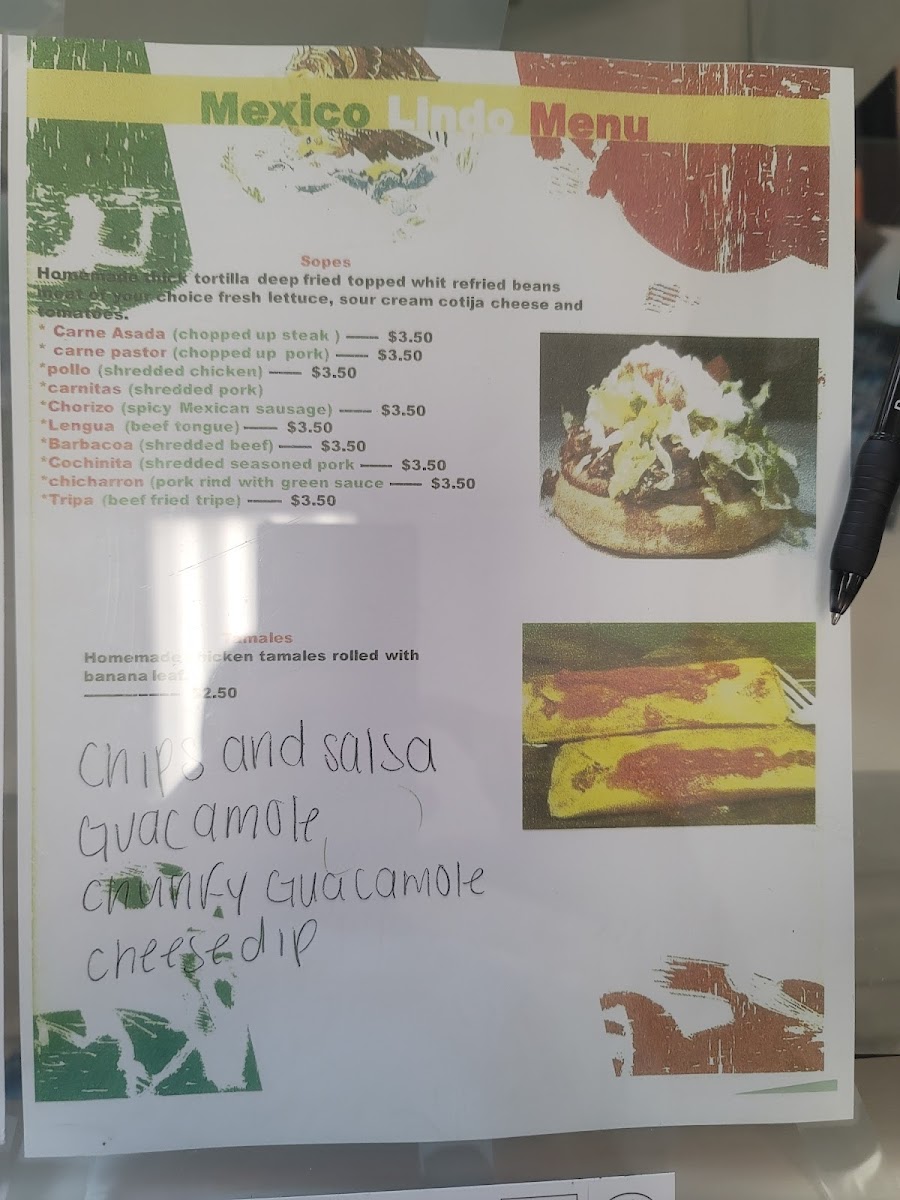 Mexico Lindo Menu
Sopes
Homemade thick tortilla deep fried topped whit refried beans
meat of your choice fresh lettuce, sour cream cotija cheese and
tomatoes.
* Carne Asada (chopped up steak ) —— $3.50
* carne pastor (chopped up pork) —— $3.50
*pollo (shredded chicken) —— $3.50
*carnitas (shredded pork)
*Chorizo (spicy Mexican sausage) —— $3.50
*Lengua (beef tongue) —— $3.50
*Barbacoa (shredded beef) —— $3.50
*Cochinita (shredded seasoned pork —— $3.50
*chicharron (pork rind with green sauce —— $3.50
*Tripa (beef fried tripe) —— $3.50
Tamales
Homemade chicken tamales rolled with
banana leaf.
—————— $2.50
Chips and salsa
Guacamole
chunky Guacamole
cheese dip